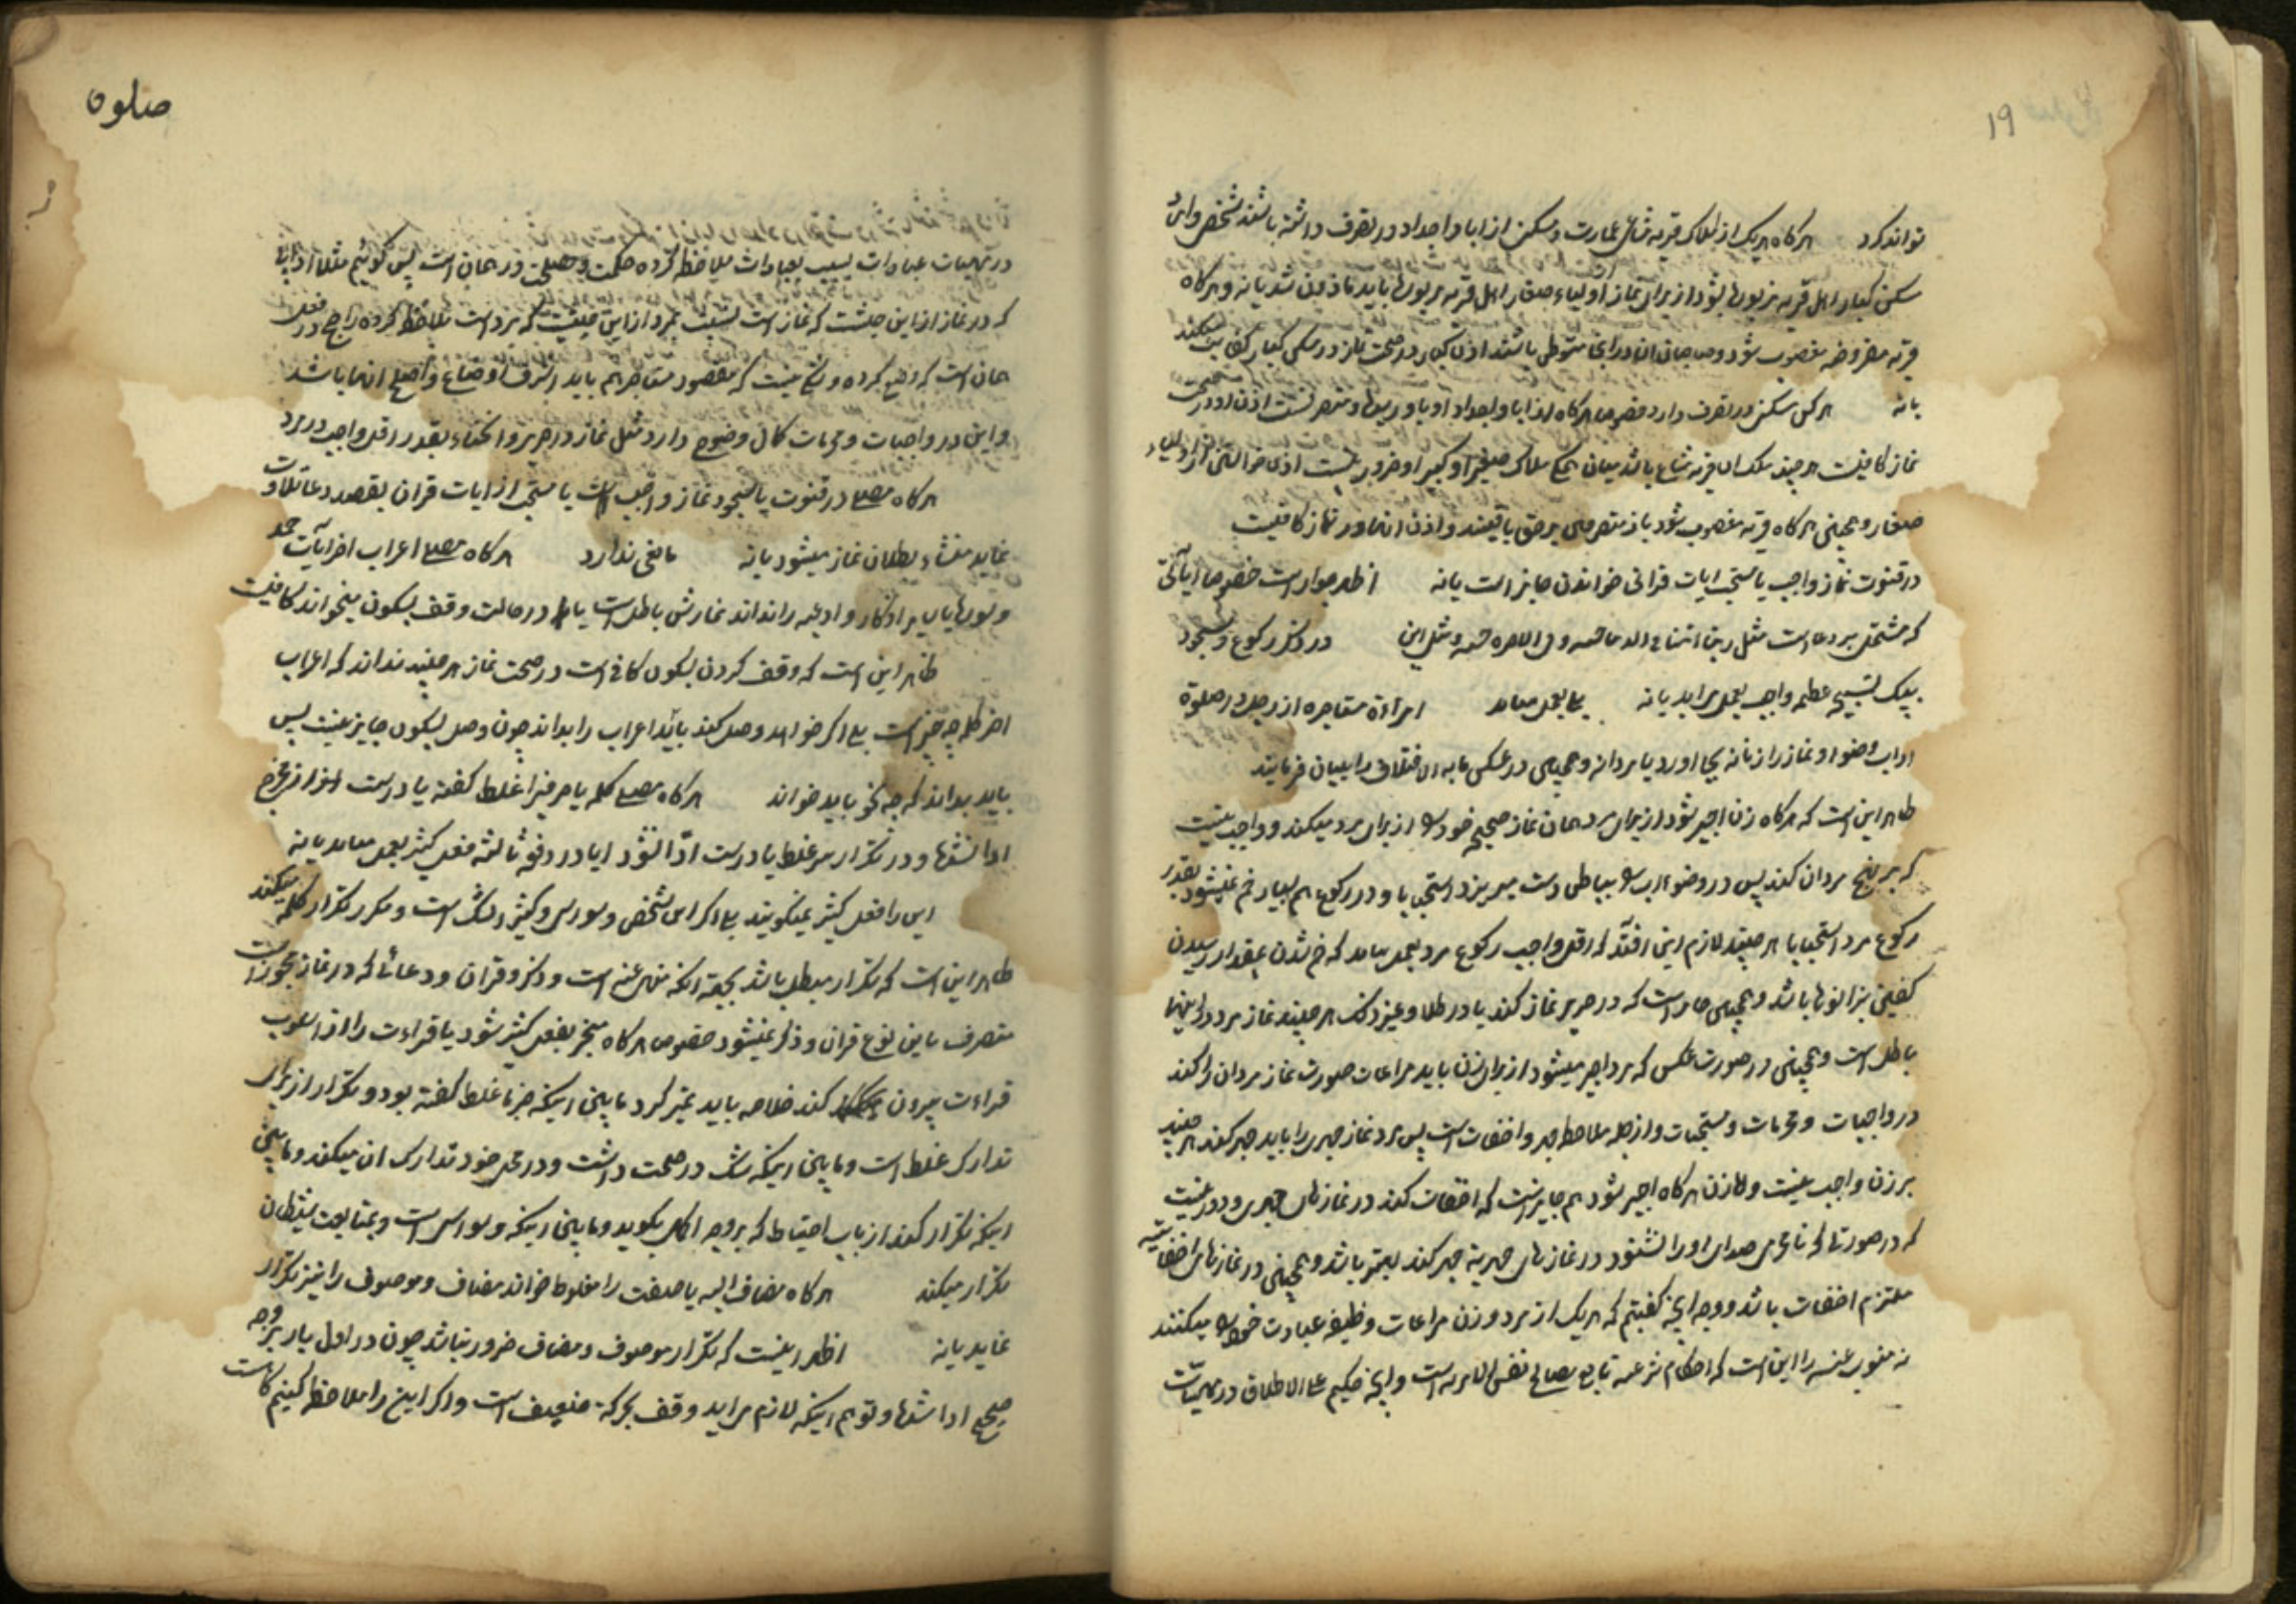 ۱۹
تواند کرد هرگاه هریک از املاک قریه مشاع عمارت و مسکن از ابا و اجداد در تصرف داشته باشند شخص
سکن کبار اهل قریه مزبورها بشود از برای نماز اولیاء صغار اهل قریه مزبورها باید ماذون شد یا نه و هرگاه
قریه مفروضه مغصوب شود و صاحبان ان در انجا متوطن باشند اذن کبار در صحت نماز در مسکن کبار کفایت میکند
یا نه هرکس مسکن در تصرف دارد خصوص هرگاه از ابا و اجداد او باو رسیده و متصرفست اذن او در صحت
نماز کافیست هرچند ملک ان قریه مشاع باشد میان همه ملاک صغیرا و کبیرا و ضرور نیست اذن خواستن از اولیاء
صغار و همچنین هرگاه قریه مغصوب شود باز متصرفین برحق باقیند و اذن انها در نماز کافیست
در قنوت نماز واجب یا سنتی ایات قرانی خواندن جایز است یا نه اظهر جواز است خصوصا ایاتی
که مشتمل بر دعاست مثل ربنا اتنا فی الدنیا حسنه و فی الاخره حسنه و مثل این در ذکر رکوع و سجود
بیک تسبیح عظیم واجب بعمل می اید یا نه بلی بعمل میاید امراءة مستاجره از رجل در صلوة
اداب وضو و نماز را زنانه بجا اورد یا مردانه و همچنین در عکس ما به الاختلاف را بیان فرمایند
ظاهر این است که هرگاه زن اجیر شود از برای مرد همان نماز صحیح خود را از برای مرد میکند و واجب نیست
که بر نهج مردان کند پس در وضو اب را بباطن دست میریزد استحبابا و در رکوع هم بسیار خم نمیشود بقدر
رکوع مرد استحبابا هرچند لازم این افتد که اقل واجب رکوع مرد بعمل نیاید که خم شدن بمقدار رسیدن
کفین بزانوها باشد و همچنین جایز است که در حریر نماز کند یا در طلا و غیر ذلک هرچند نماز مرد در اینها
باطل است و همچنین در صورت عکس که مرد اجیر میشود از برای زن باید مراعات صورت نماز مردان را کند
در واجبات و محرمات و مستحبات و از جمله ملاحظه جهر و اخفات است پس مرد نماز جهری را باید جهر کند هرچند
بر زن واجب نیست و اما زن هرگاه اجیر شود هم جایز است که اخفات کند در نمازهای جهری و دور نیست
که در صورتی که نامحرمی صدای او را نشنود در نمازهای جهریه جهر کند بهتر باشد و همچنین در نمازهای اخفاتیه
ملتزم اخفات باشد و وجه انچه گفتیم که هریک از مرد و زن مراعات وظیفه عبادت خود را میکنند
نه منوب عنه را این است که احکام شرعیه تابع مصالح نفس الامریه است و انچه حکیم علی الاطلاق در ماهیات
صلوة
که در نماز از این حیثیت که نماز است نسبت بمرد از این حیثیت که مرد است ملاحظه کرده راجح در فعل
همان است که وضع کرده و شکی نیست که مقصود مستاجر هم باید اشرف اوضاع و اصلح انها باشد
و این در واجبات و محرمات کمال وضوح دارد مثل نماز در حریر و انحناء بقدر اقل واجب در مرد
هرگاه مصلی در قنوت یا سجود نماز واجب است یا سنتی از ایات قران بقصد دعا تلاوت
نماید منشاء بطلان نماز میشود یا نه مانعی ندارد هرگاه مصلی اعراب اخر ایات حمد
و سوره یا سایر اذکار و ادعیه را نداند نمازش باطل است یا در حالت وقف بسکون میخواند کافیست
ظاهر این است که وقف کردن بسکون کافی است در صحت نماز هرچند نداند که اعراب
اخر کلمه چه چیز است بلی اگر خواهد وصل کند باید اعراب را بداند چون وصل بسکون جایز نیست پس
باید بداند که چه نحو باید خواند هرگاه مصلی کلمه یا حرفی را غلط گفته یا درست از مخرج
ادا نشده و در تکرار سر غلط یا درست ادا نشود ایا در دفعه ثالثه فعل کثیر بعمل میاید یا نه
این را فعل کثیر نمیگویند بلی اگر این شخص وسواسی و کثیر الشک است و مکرر تکرار کلمه میکند
ظاهر این است که تکرار مبطل باشد بجهة انکه منهی عنه است و ذکر و قران و دعائی که در نماز مجوز است
متصرف باین نوع قران و ذکر نمیشود خصوص هرگاه منجر بفعل کثیر شود یا قراءت را از اسلوب
قراءت بیرون کند خلاصه باید تمیز کرد مابین اینکه جزما غلط گفته بود و تکرار از برای
تدارک غلط است و مابین اینکه شک در صحت داشت و در محل خود تدارک ان میکند و مابین
اینکه تکرار کند از باب احتیاط که بر وجه اکمل بگوید و مابین اینکه وسواس است و بمتابعت شیطان
تکرار میکند هرگاه مضاف الیه یا صفت را مغلوط خواند مضاف و موصوف را نیز تکرار
نماید یا نه اظهر اینست که تکرار موصوف و مضاف ضرور نباشد چون در اول بار بر وجه
صحیح ادا شده و توهم اینکه لازم می اید وقف بحرکة ضعیف است و اگر این را ملاحظه کنیم